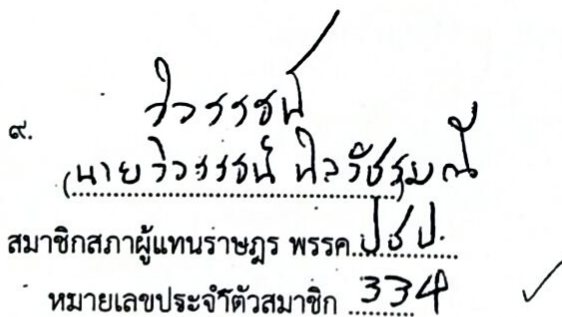 ๙.
วิวรรธน์
(นายวิวรรธน์ นิลวัชรมณี
สมาชิกสภาผู้แทนราษฎร พรรค ปชป.
หมายเลขประจำตัวสมาชิก 334